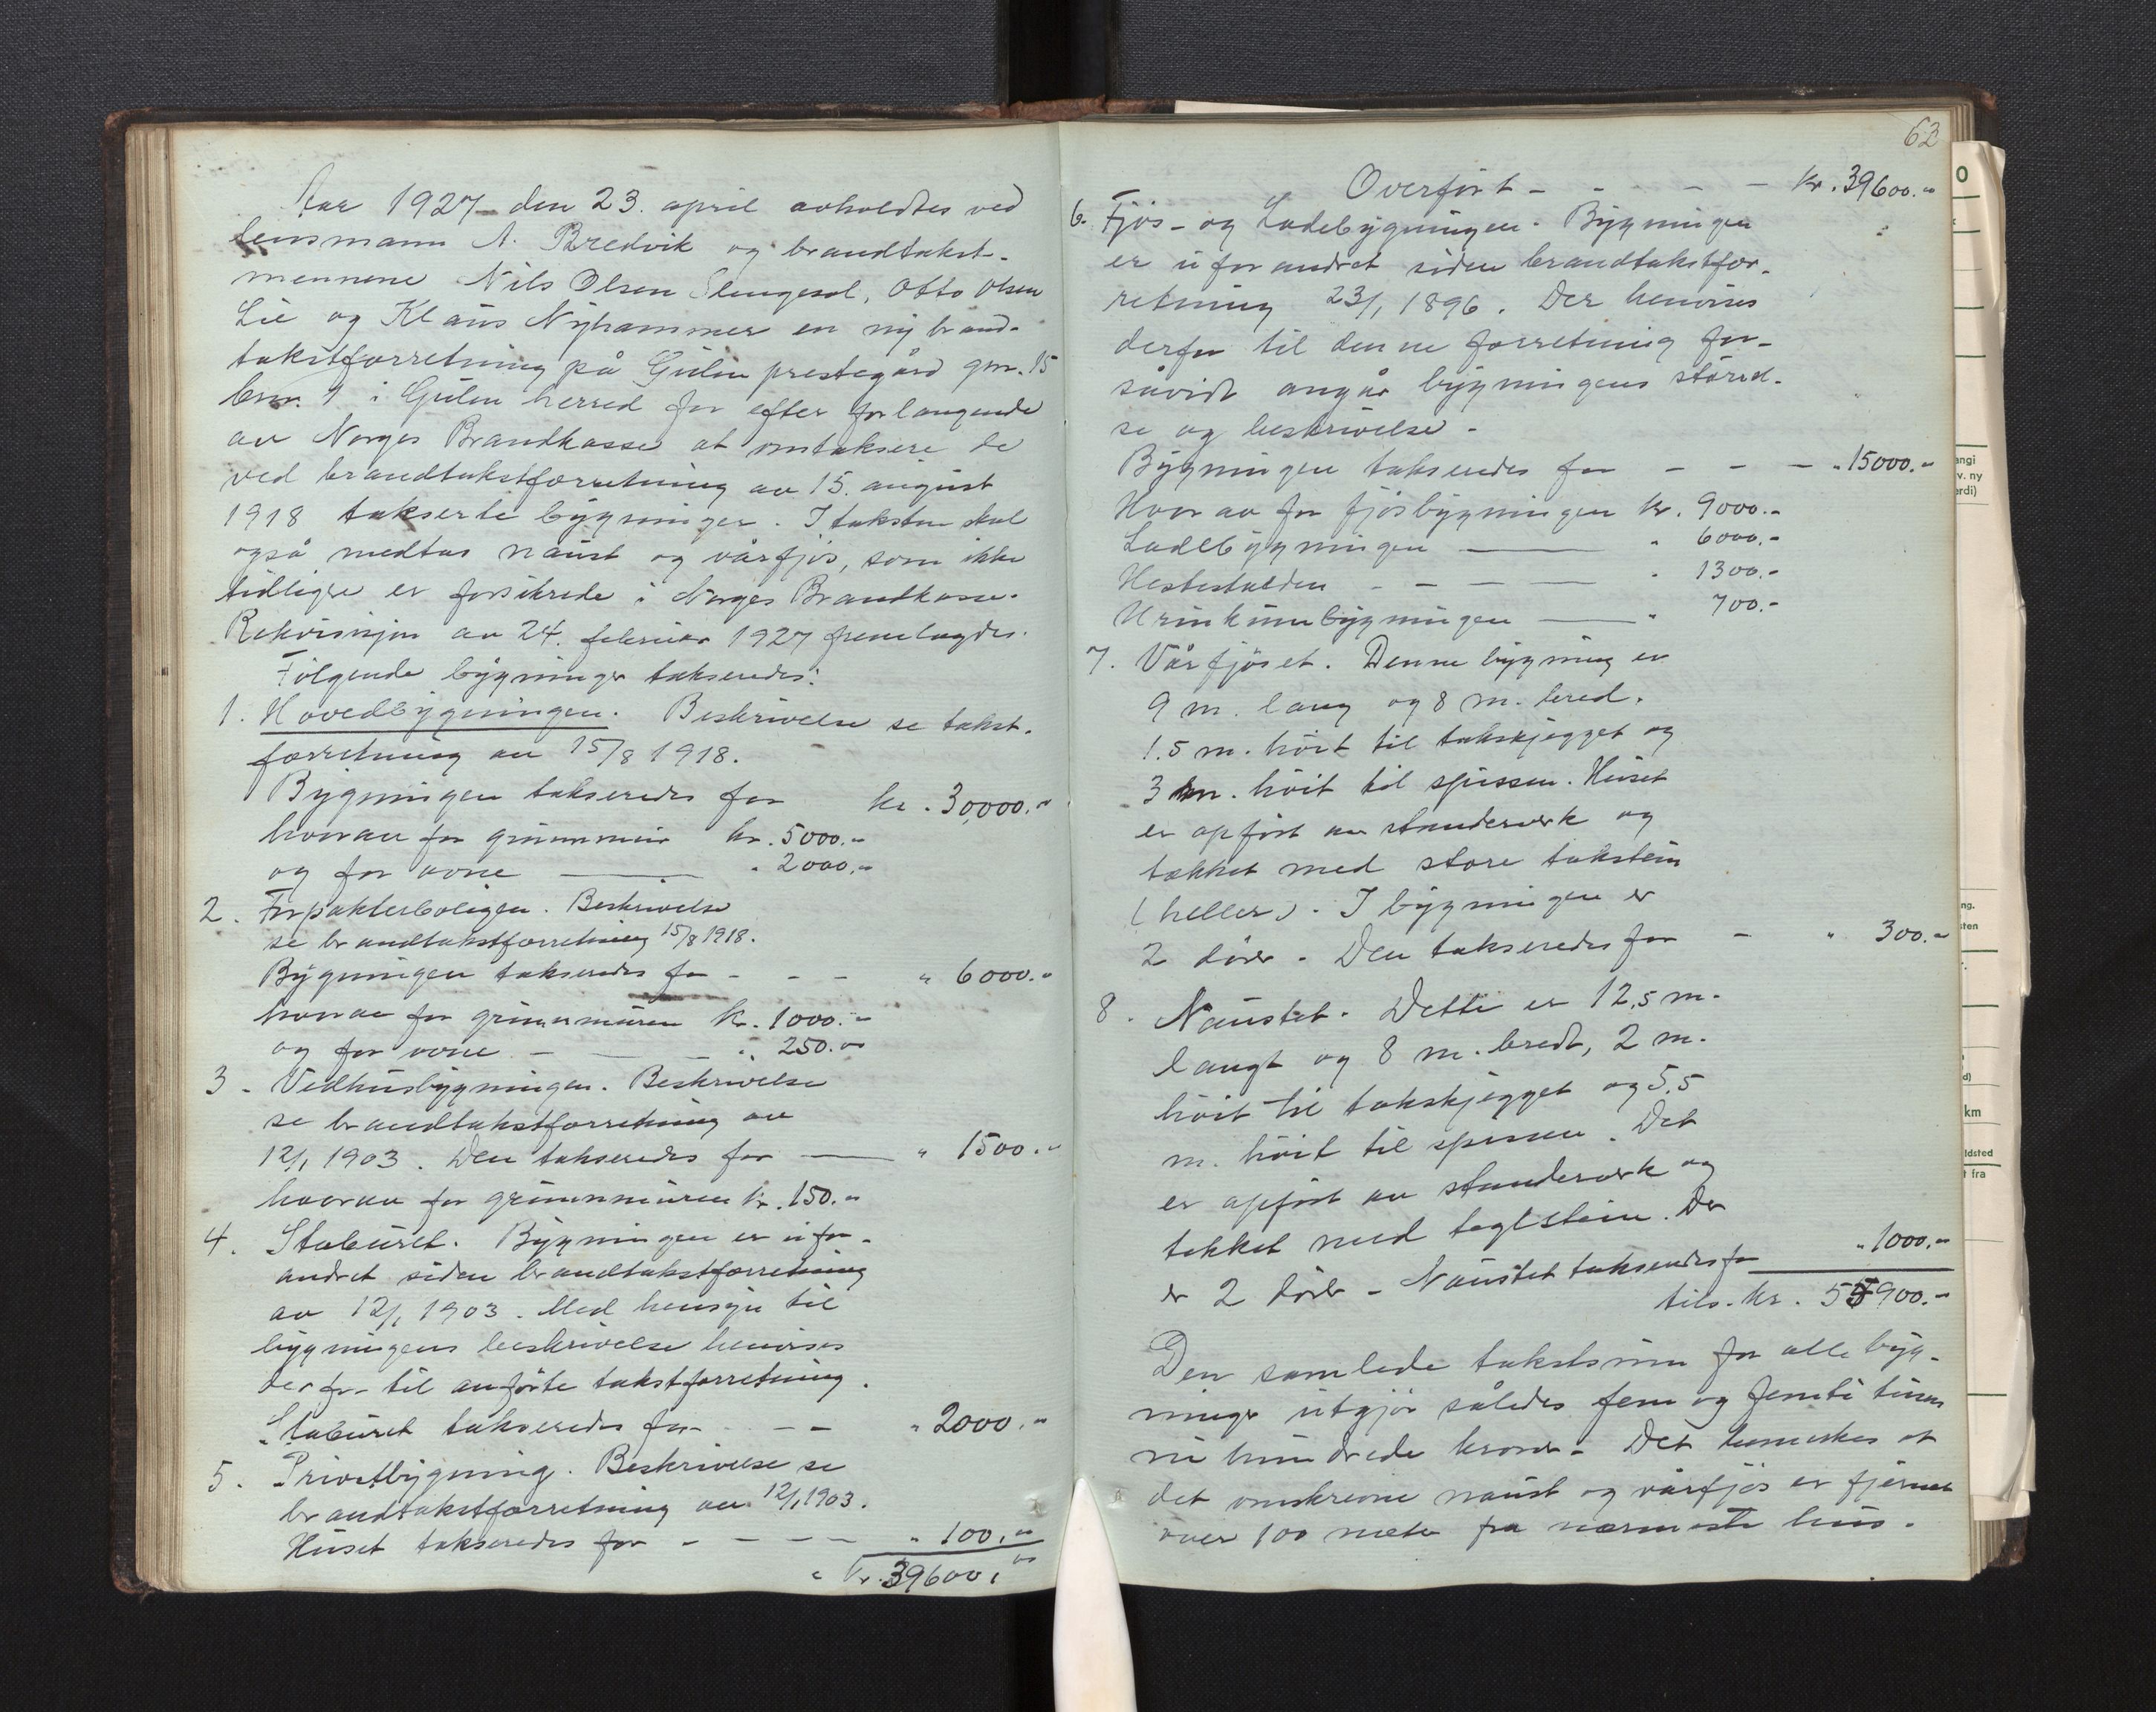 Aar 1927 den 23. april avholdtes ved
lensmann A. Bredvik og brandtakst-
mennene Nils Olsen Slengesol, Otto Olsen
Lie og Klaus Nyhammer en ny brand-
takstforretning på Gulen prestegård gnr. 15
brnr. 1 i Gulen herred for efter forlangende
av Norges Brandkasse at omtaksere de
ved brandtakstforretning av 15. august
1918 takserte bygninger. I taksten skal
også medtas naust og vårfjøs, som ikke
tidligere er forsikrede i Norges Brandkasse.
Rekvisisjon av 24. februar 1927 fremlagdes.
Følgende bygninger takseredes:
1. Hovedbygningen. Beskrivelse se takst-
forretning av 15/8 1918.
Bygningen takseredes for kr. 30,000.-
hvorav for grunnmur kr. 5000.-
og for ovne — " 2000.-
2. Forpakterboligen. Beskrivelse
se brandtakstforretning 15/8 1918.
Bygningen takseredes for - - - " 6000.-
hvorav for grunnmuren kr. 1000.-
og for ovne - — " 250.-
3. Vedhusbygningen. Beskrivelse
se brandtakstforretning av
12/1 1903. Den takseredes for — " 1500.-
hvorav for grunnmuren kr. 150.-
4. Staburet. Bygningen er ufor-
andret siden brandtakstforretning
av 12/1 1903. Med hensyn til
bygningens beskrivelse henvises
derfor til anførte takstforretning.
Staburet takseredes for - - - " 2000.-
5. Privetbygning. Beskrivelse se
brandtakstforretning av 12/1 1903.
Huset takseredes for - - - — " 100.-
Kr. 39600.-
63
Overført - - - - - kr. 39600.-
6. Fjøs- og Ladebygningen. Bygningen
er uforandret siden brandtakstfor-
retning 23/1 1896. Der henvises
derfor til denne forretning for-
såvidt angår bygningens størrel-
se og beskrivelse.
Bygningen takseredes for - - - " 15000.-
Hvorav for fjøsbygningen kr. 9000.-
Ladebygningen — " 6000.-
Hestestalden - - - — " 1300.-
Urinkumbygningen — " 700.-
7. Vårfjøset. Denne bygning er
9 m. lang og 8 m. bred.
1.5 m. høit til takskjegget og
3 m. høit til spissen. Huset
er opført av standerverk og
tækket med store takstein
(heller). I bygningen er
2 dører. Den takseredes for - " 300.-
8. Naustet. Dette er 12,5 m.
langt og 8 m. bredt, 2 m.
høit til takskjegget og 5.5
m. høit til spissen. Det
er opført av standerverk og
tekket med teglstein. Der
er 2 dører. Naustet takseredes for " 1000.-
tils. kr. 55900.-
Den samlede takstsum for alle byg-
ninger utgjør således fem og femti tusen
ni hundrede kroner. Det bemerkes at
det omskrevne naust og vårfjøs er fjernet
over 100 meter fra nærmeste hus.